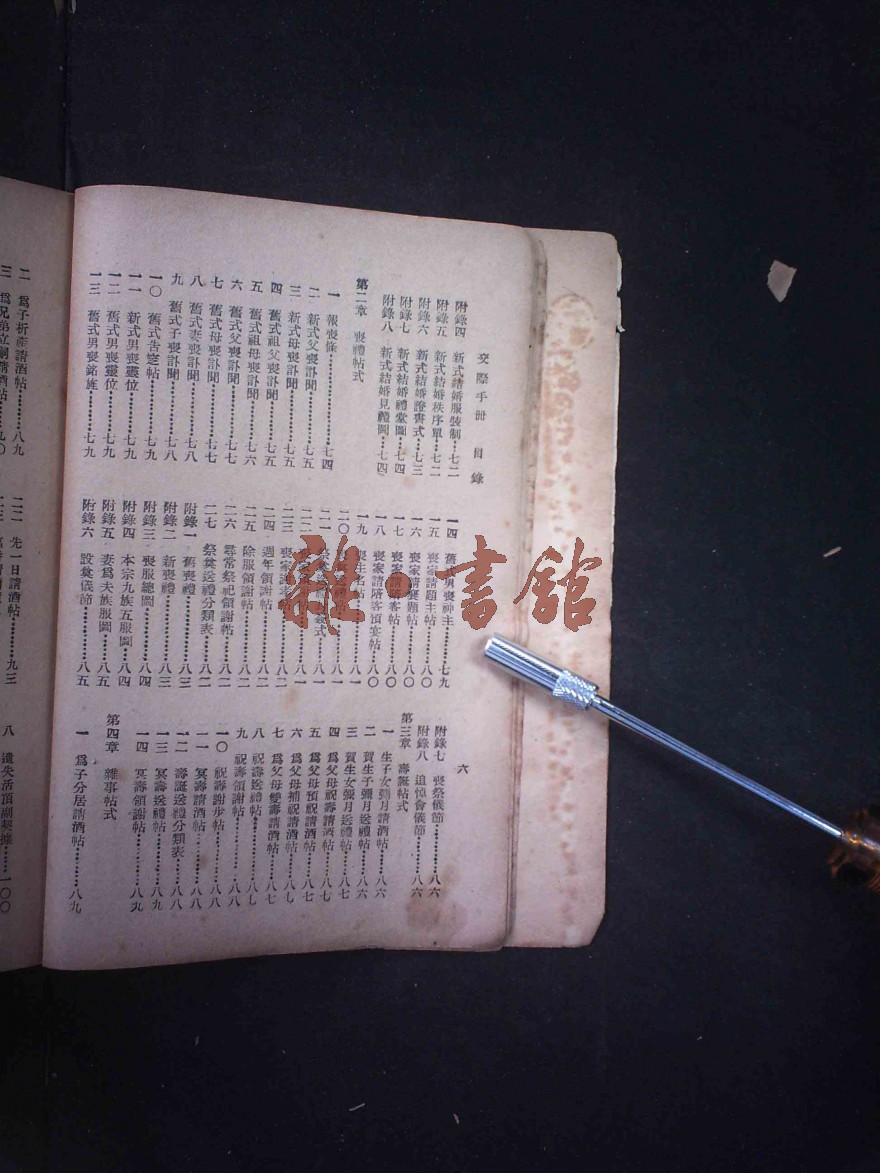 交際手冊 目錄
六
附錄四 新式結婚服裝制……七二
附錄五 新式結婚秩序單……七二
附錄六 新式結婚證書式……七三
附錄七 新式結婚禮堂圖……七四
附錄八 新式結婚見禮圖……七四
第二章 喪禮帖式
一 報喪條……七四
二 新式父喪訃聞……七五
三 新式母喪訃聞……七五
四 舊式祖父喪訃聞……七五
五 舊式祖母喪訃聞……七六
六 舊式父喪訃聞……七七
七 舊式母喪訃聞……七七
八 舊式妻喪訃聞……七八
九 舊式子喪訃聞……七八
一〇 舊式苫塊帖……七九
一一 新式男喪靈位……七九
一二 舊式男喪靈位……七九
一三 舊式男喪銘旌……七九
一四 舊式男喪神主……七九
一五 喪家請題主帖……八〇
一六 喪家請襄題帖……八〇
一七 喪家請陪客帖……八〇
一八 喪家請陪客預宴帖……八〇
一九 喪生名帖……八一
二〇 帖……八一
二一 祭 式……八一
二二 ……八一
二三 喪家謝 帖……八二
二四 週年領謝帖……八二
二五 除服領謝帖……八二
二六 尋常祭祀領謝帖……八二
二七 祭奠送禮分類表……八二
附錄一 舊喪禮……八三
附錄二 新喪禮……八三
附錄三 喪服總圖……八四
附錄四 本宗九族五服圖……八四
附錄五 妻爲夫族服圖……八五
附錄六 設奠儀節……八五
附錄七 喪祭儀節……八六
附錄八 追悼會儀節……八六
第三章 壽誕帖式
一 生子女彌月請酒帖……八六
二 賀生子彌月送禮帖……八六
三 賀生女彌月送禮帖……八七
四 爲父母祝壽請酒帖……八七
五 爲父母預祝請酒帖……八七
六 爲父母補祝請酒帖……八七
七 爲父母雙壽請酒帖……八七
八 祝壽送禮帖……八七
九 祝壽領謝帖……八八
一〇 祝壽謝步帖……八八
一一 冥壽請酒帖……八八
一二 壽誕送禮分類表……八八
一三 冥壽送禮帖……八九
一四 冥壽領謝帖……八九
第四章 雜事帖式
一 爲子分居請酒帖……八九
二 爲子析產請酒帖……八九
三 爲兄弟立嗣請酒帖……九〇
二二 先一日請酒帖……九三
八 遺失活頂副契據……一〇〇
雜書館